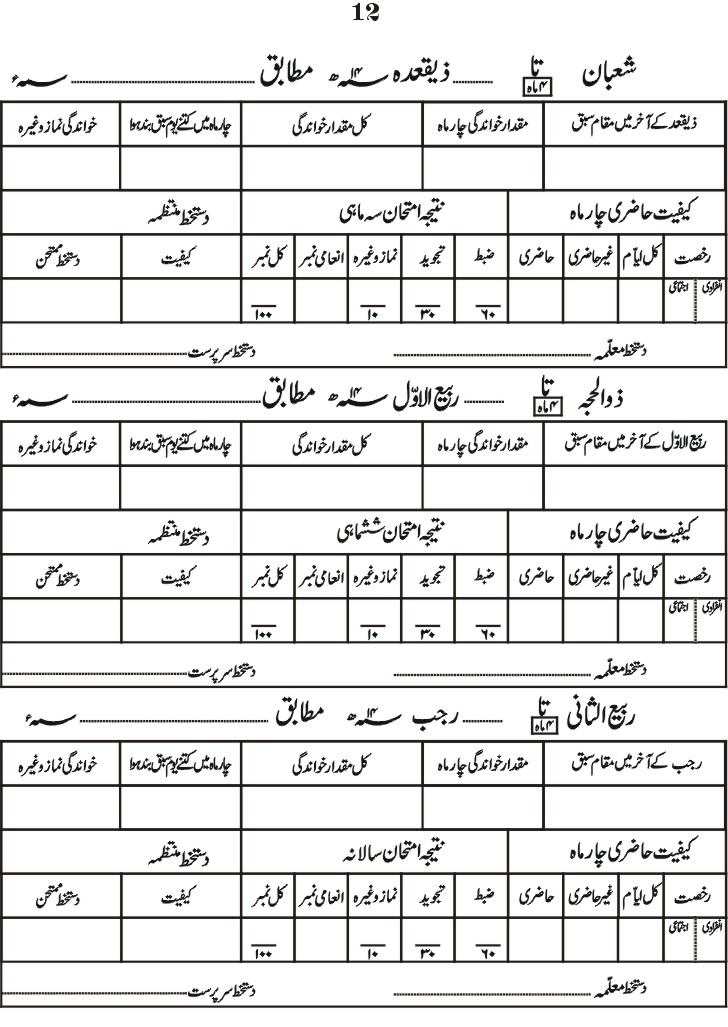 12
شعبان تا ۴ ماہ .......... ذیقعدہ ۱۴ ؁ھ مطابق .......................... ؁ء
ذیقعد کے آخر میں مقام سبق مقدار خواندگی چار ماہ کل مقدار خواندگی چار ماہ میں کتنے یوم سبق بند ہوا خواندگی نماز وغیرہ
کیفیت حاضری چار ماہ نتیجہ امتحان سہ ماہی دستخط منتظمہ
رخصت کل ایّام غیر حاضری حاضری ضبط تجوید نماز وغیرہ انعامی نمبر کل نمبر کیفیت دستخط ممتحن
انفرادی اجتماعی ۶۰ ۳۰ ۱۰ ۱۰۰
دستخط معلّمہ .......................... دستخط سرپرست ..........................
ذوالحجہ تا ۴ ماہ .......... ربیع الاوّل ۱۴ ؁ھ مطابق .......................... ؁ء
ربیع الاوّل کے آخر میں مقام سبق مقدار خواندگی چار ماہ کل مقدار خواندگی چار ماہ میں کتنے یوم سبق بند ہوا خواندگی نماز وغیرہ
کیفیت حاضری چار ماہ نتیجہ امتحان ششماہی دستخط منتظمہ
رخصت کل ایّام غیر حاضری حاضری ضبط تجوید نماز وغیرہ انعامی نمبر کل نمبر کیفیت دستخط ممتحن
انفرادی اجتماعی ۶۰ ۳۰ ۱۰ ۱۰۰
دستخط معلّمہ .......................... دستخط سرپرست ..........................
ربیع الثانی تا ۴ ماہ .......... رجب ۱۴ ؁ھ مطابق .......................... ؁ء
رجب کے آخر میں مقام سبق مقدار خواندگی چار ماہ کل مقدار خواندگی چار ماہ میں کتنے یوم سبق بند ہوا خواندگی نماز وغیرہ
کیفیت حاضری چار ماہ نتیجہ امتحان سالانہ دستخط منتظمہ
رخصت کل ایّام غیر حاضری حاضری ضبط تجوید نماز وغیرہ انعامی نمبر کل نمبر کیفیت دستخط ممتحن
انفرادی اجتماعی ۶۰ ۳۰ ۱۰ ۱۰۰
دستخط معلّمہ .......................... دستخط سرپرست ..........................